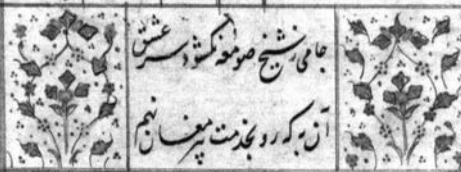 جامی ز شیخ صومعه نگشود سر عشق
آن به که رو بخدمت پیر مغان نهیم